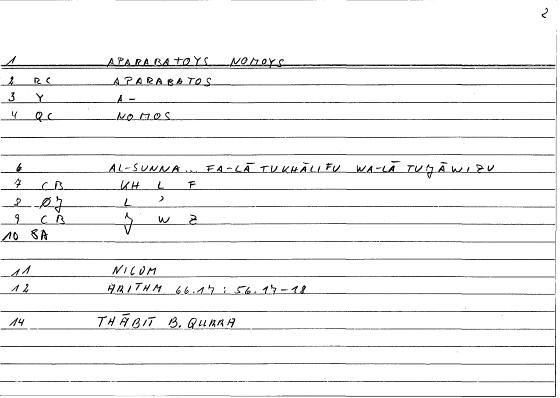 2
1 APARABATOYS NOMOYS
2 RC APARABATOS
3 Y A-
4 QC NOMOS
6 AL-SUNNA... FA-LĀ TUKHĀLIFU WA-LĀ TUJĀWIZU
7 CB KH L F
8 ØJ L ʾ
9 CB J W Z
10 SA
11 NICOM
12 ARITHM 66.17 : 56.17-18
14 THĀBIT B. QURRA